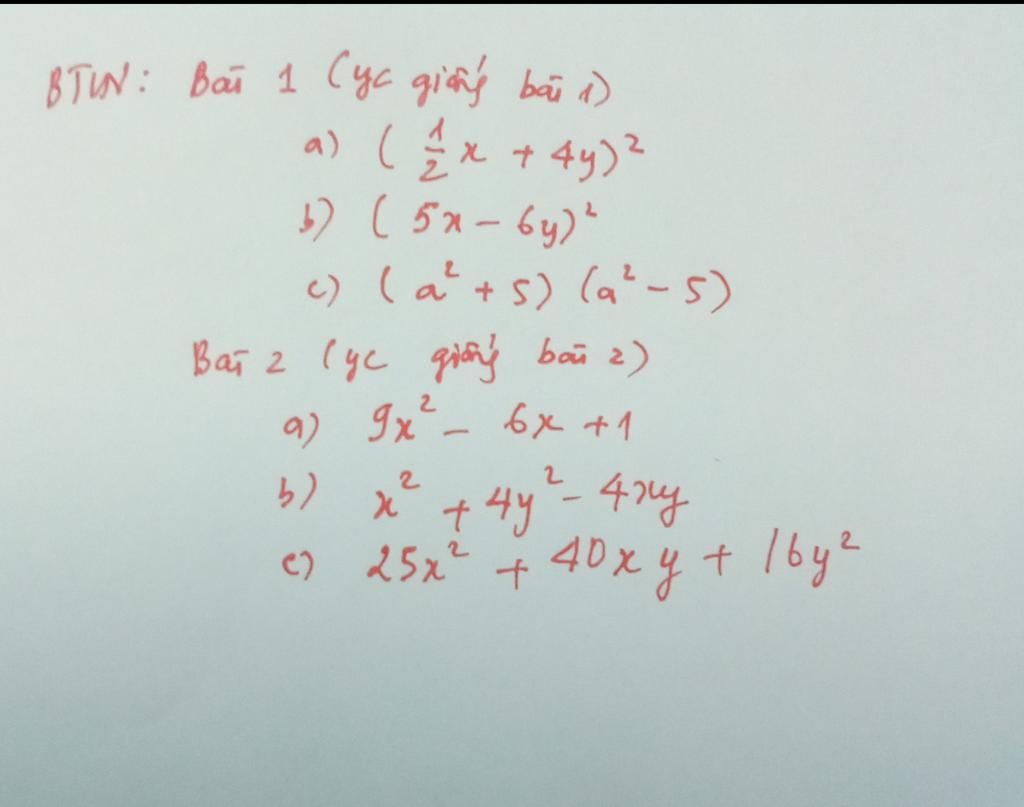 BTVN: Bài 1 (yc giống bài 1)
a) (1/2 x + 4y)²
b) (5x - 6y)²
c) (a² + 5) (a² - 5)
Bài 2 (yc giống bài 2)
a) 9x² - 6x + 1
b) x² + 4y² - 4xy
c) 25x² + 40xy + 16y²